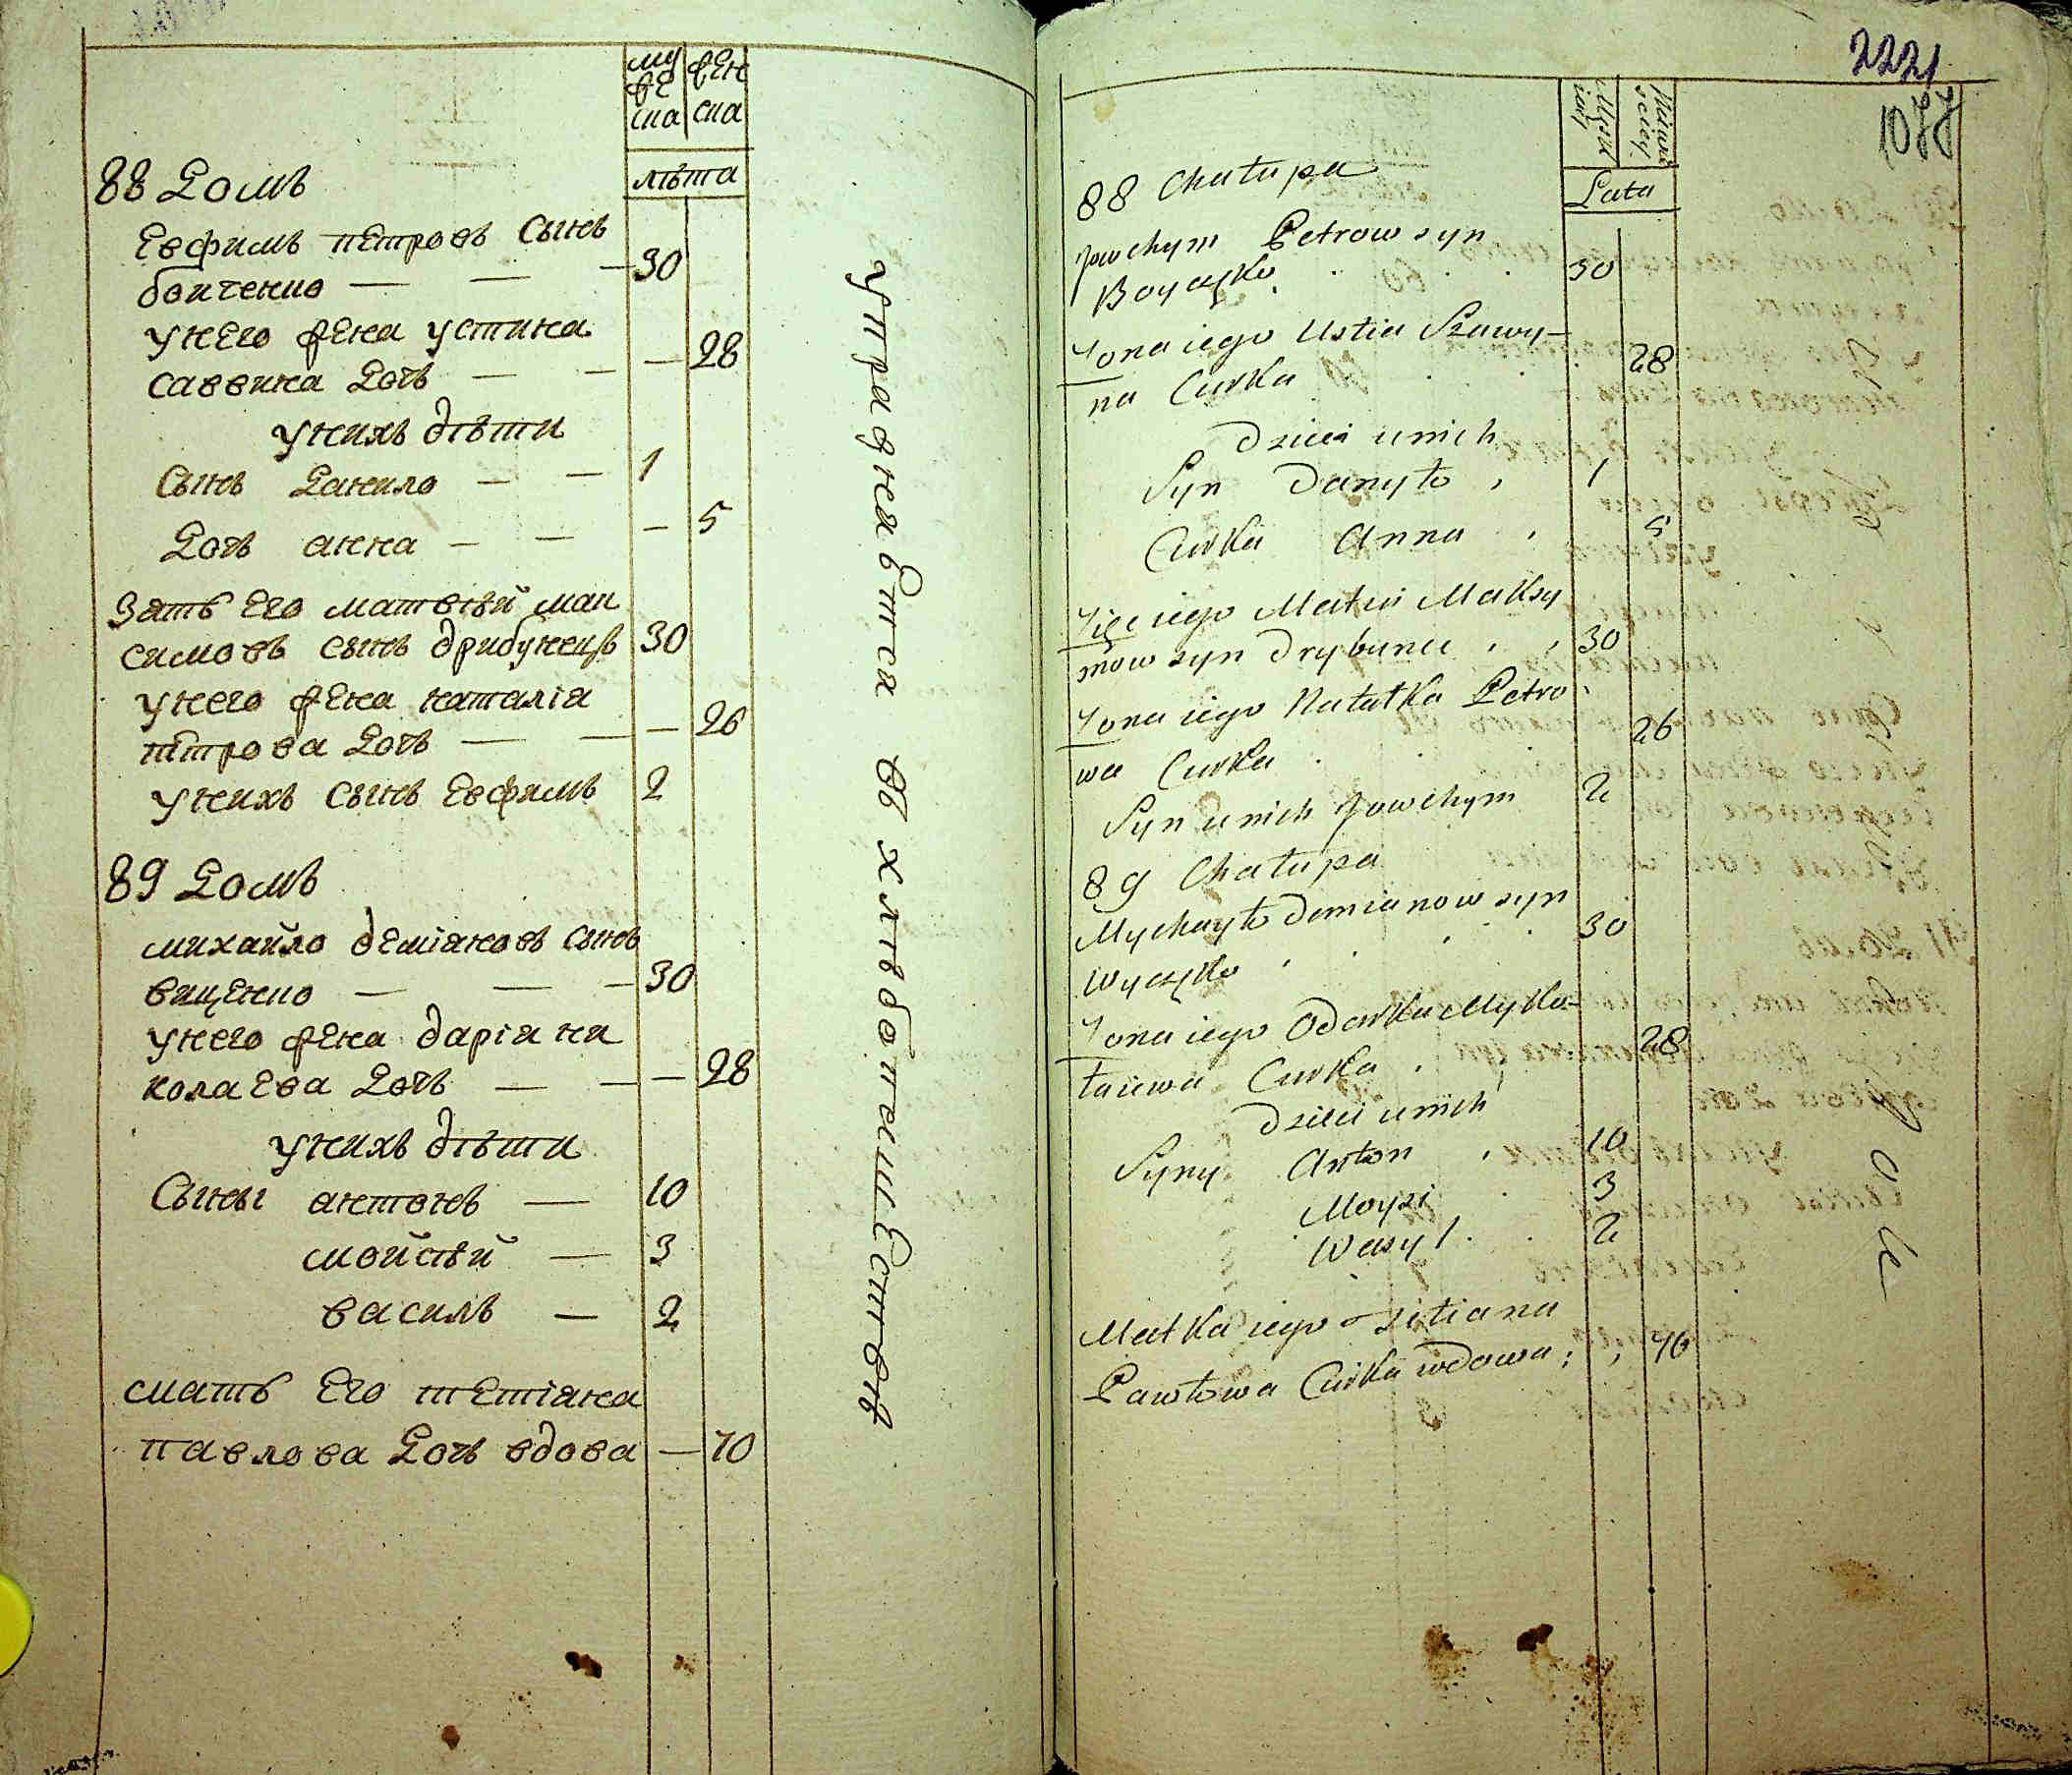 му
же
ска
жен
ска
лѣта
88 Домъ
Евфимъ петровъ Сынъ
боиченко — — — 30
унего жена устина
саввина Дочь — — — 28
унихъ дѣти
Сынъ Данило — — 1
Дочь анна — — — 5
Зять Его матвѣй мак
симовъ сынъ дрибунецъ 30
унего жена наталія
петрова Дочь — — — 26
унихъ сынъ Евфимъ 2
89 Домъ
михайло деміановъ сынъ
виценко — — — 30
унего жена дарія ни
колаева Дочь — — — 28
унихъ дѣти
Сыны антонъ — 10
мойсѣй — 3
василь — 2
мать Его тетіана
павлова Дочь вдова — 70
упражняется въ хлѣбопашествѣ
2221
1077
Męsk
iey
Niewi
sciey
Lata
88 Chałupa
Jowchym Petrow syn
Boyczko . . . 30
Żona iego Ustia Sawy-
na Curka . . . 28
Dzieci u nich
Syn Danyło , 1
Curka Anna , 5
Zięć iego Matwi Maksy
mow syn Drybuneć , , 30
Żona iego Natałka Petro
wa Curka . . 26
Syn u nich Jowchym 2
89 Chałupa
Mychayło Demianow syn
Wyczko . . . 30
Żona iego Odarka Myko-
łaiewa Curka . , 28
Dzieci u nich
Syny Anton , 10
Moysi . 3
Wasyl . . 2
Matka iego Tetiana
Pawłowa Curka wdowa ; , 70